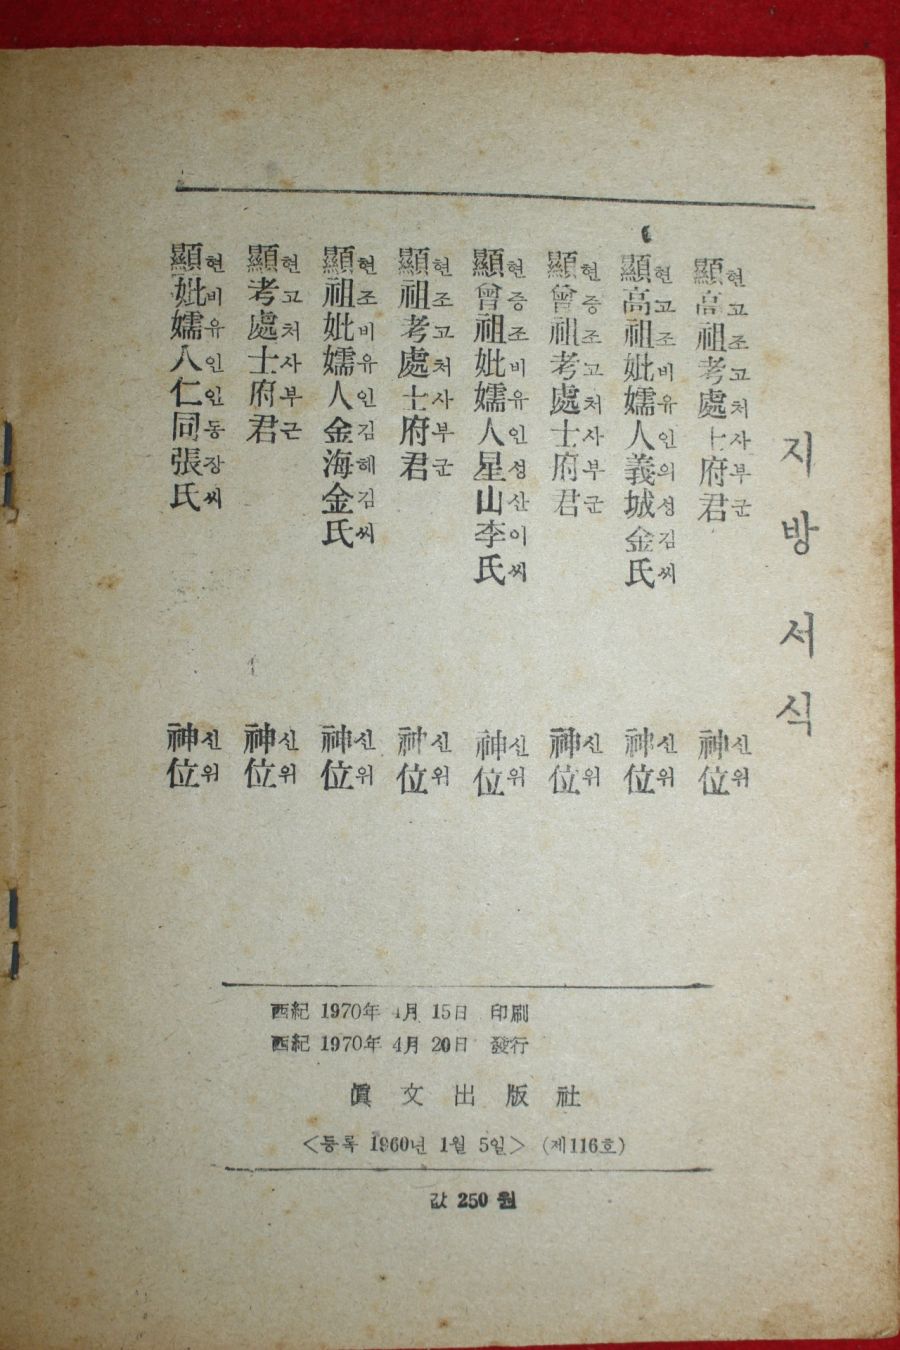 지방서식
顯高祖考處士府君 神位
현고조고처사부군 신위
顯高祖妣孺人義城金氏 神位
현고조비유인의성김씨 신위
顯曾祖考處士府君 神位
현증조고처사부군 신위
顯曾祖妣孺人星山李氏 神位
현증조비유인성산이씨 신위
顯祖考處士府君 神位
현조고처사부군 신위
顯祖妣孺人金海金氏 神位
현조비유인김해김씨 신위
顯考處士府君 神位
현고처사부군 신위
顯妣孺人仁同張氏 神位
현비유인인동장씨 신위
西紀 1970年 4月 15日 印刷
西紀 1970年 4月 20日 發行
眞文出版社
<등록 1960년 1월 5일> (제116호)
값 250 원